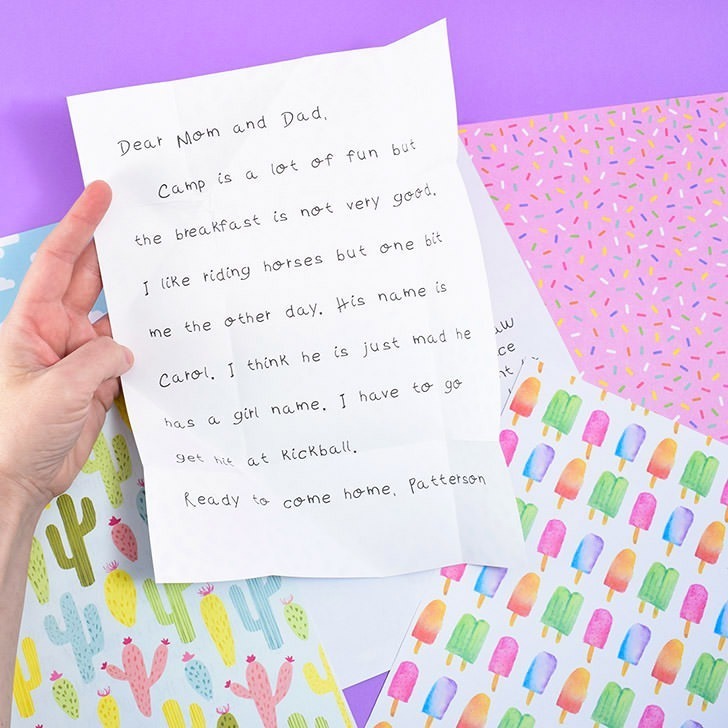 Dear Mom and Dad,
Camp is a lot of fun but
the breakfast is not very good.
I like riding horses but one bit
me the other day. His name is
Carol. I think he is just mad he
has a girl name. I have to go
get hit at kickball.
Ready to come home, Patterson